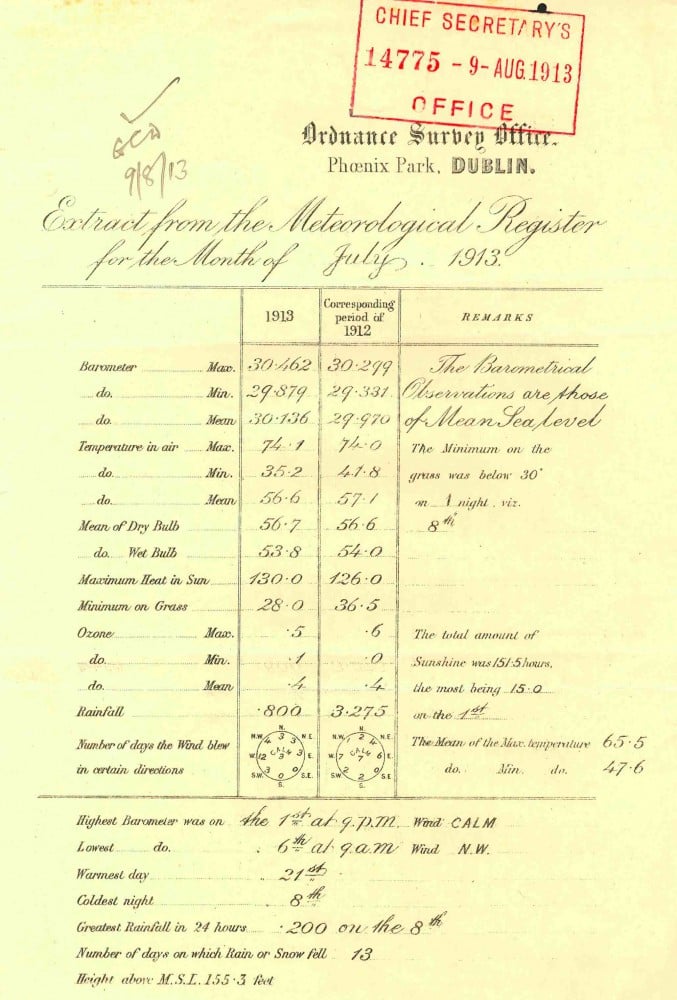 CHIEF SECRETARY'S
14775 - 9 - AUG. 1913
OFFICE
9/8/13
Ordnance Survey Office.
Phœnix Park, DUBLIN.
Extract from the Meteorological Register
for the Month of July. 1913.
1913 Corresponding period of 1912 REMARKS
Barometer Max. 30·462 30·299 The Barometrical
do. Min. 29·879 29·331 Observations are those
do. Mean 30·136 29·970 of Mean Sea level
Temperature in air Max. 74·1 74·0 The Minimum on the
do. Min. 35·2 41·8 grass was below 30°
do. Mean 56·6 57·1 on 1 night, viz.
Mean of Dry Bulb 56·7 56·6 8th
do. Wet Bulb 53·8 54·0
Maximum Heat in Sun 130·0 126·0
Minimum on Grass 28·0 36·5
Ozone Max. ·5 ·6 The total amount of
do. Min. ·1 ·0 Sunshine was 151·5 hours,
do. Mean ·4 ·4 the most being 15·0
Rainfall ·800 3·275 on the 1st
Number of days the Wind blew The Mean of the Max. temperature 65·5
in certain directions do. Min. do. 47·6
N. N.E. E. S.E. S. S.W. W. N.W. CALM
N. N.E. E. S.E. S. S.W. W. N.W. CALM
Highest Barometer was on the 1st at 9.p.m. Wind CALM
Lowest do. „ 6th at 9.a.m Wind N.W.
Warmest day „ 21st
Coldest night „ 8th
Greatest Rainfall in 24 hours ·200 on the 8th
Number of days on which Rain or Snow fell 13
Height above M.S.L. 155·3 feet